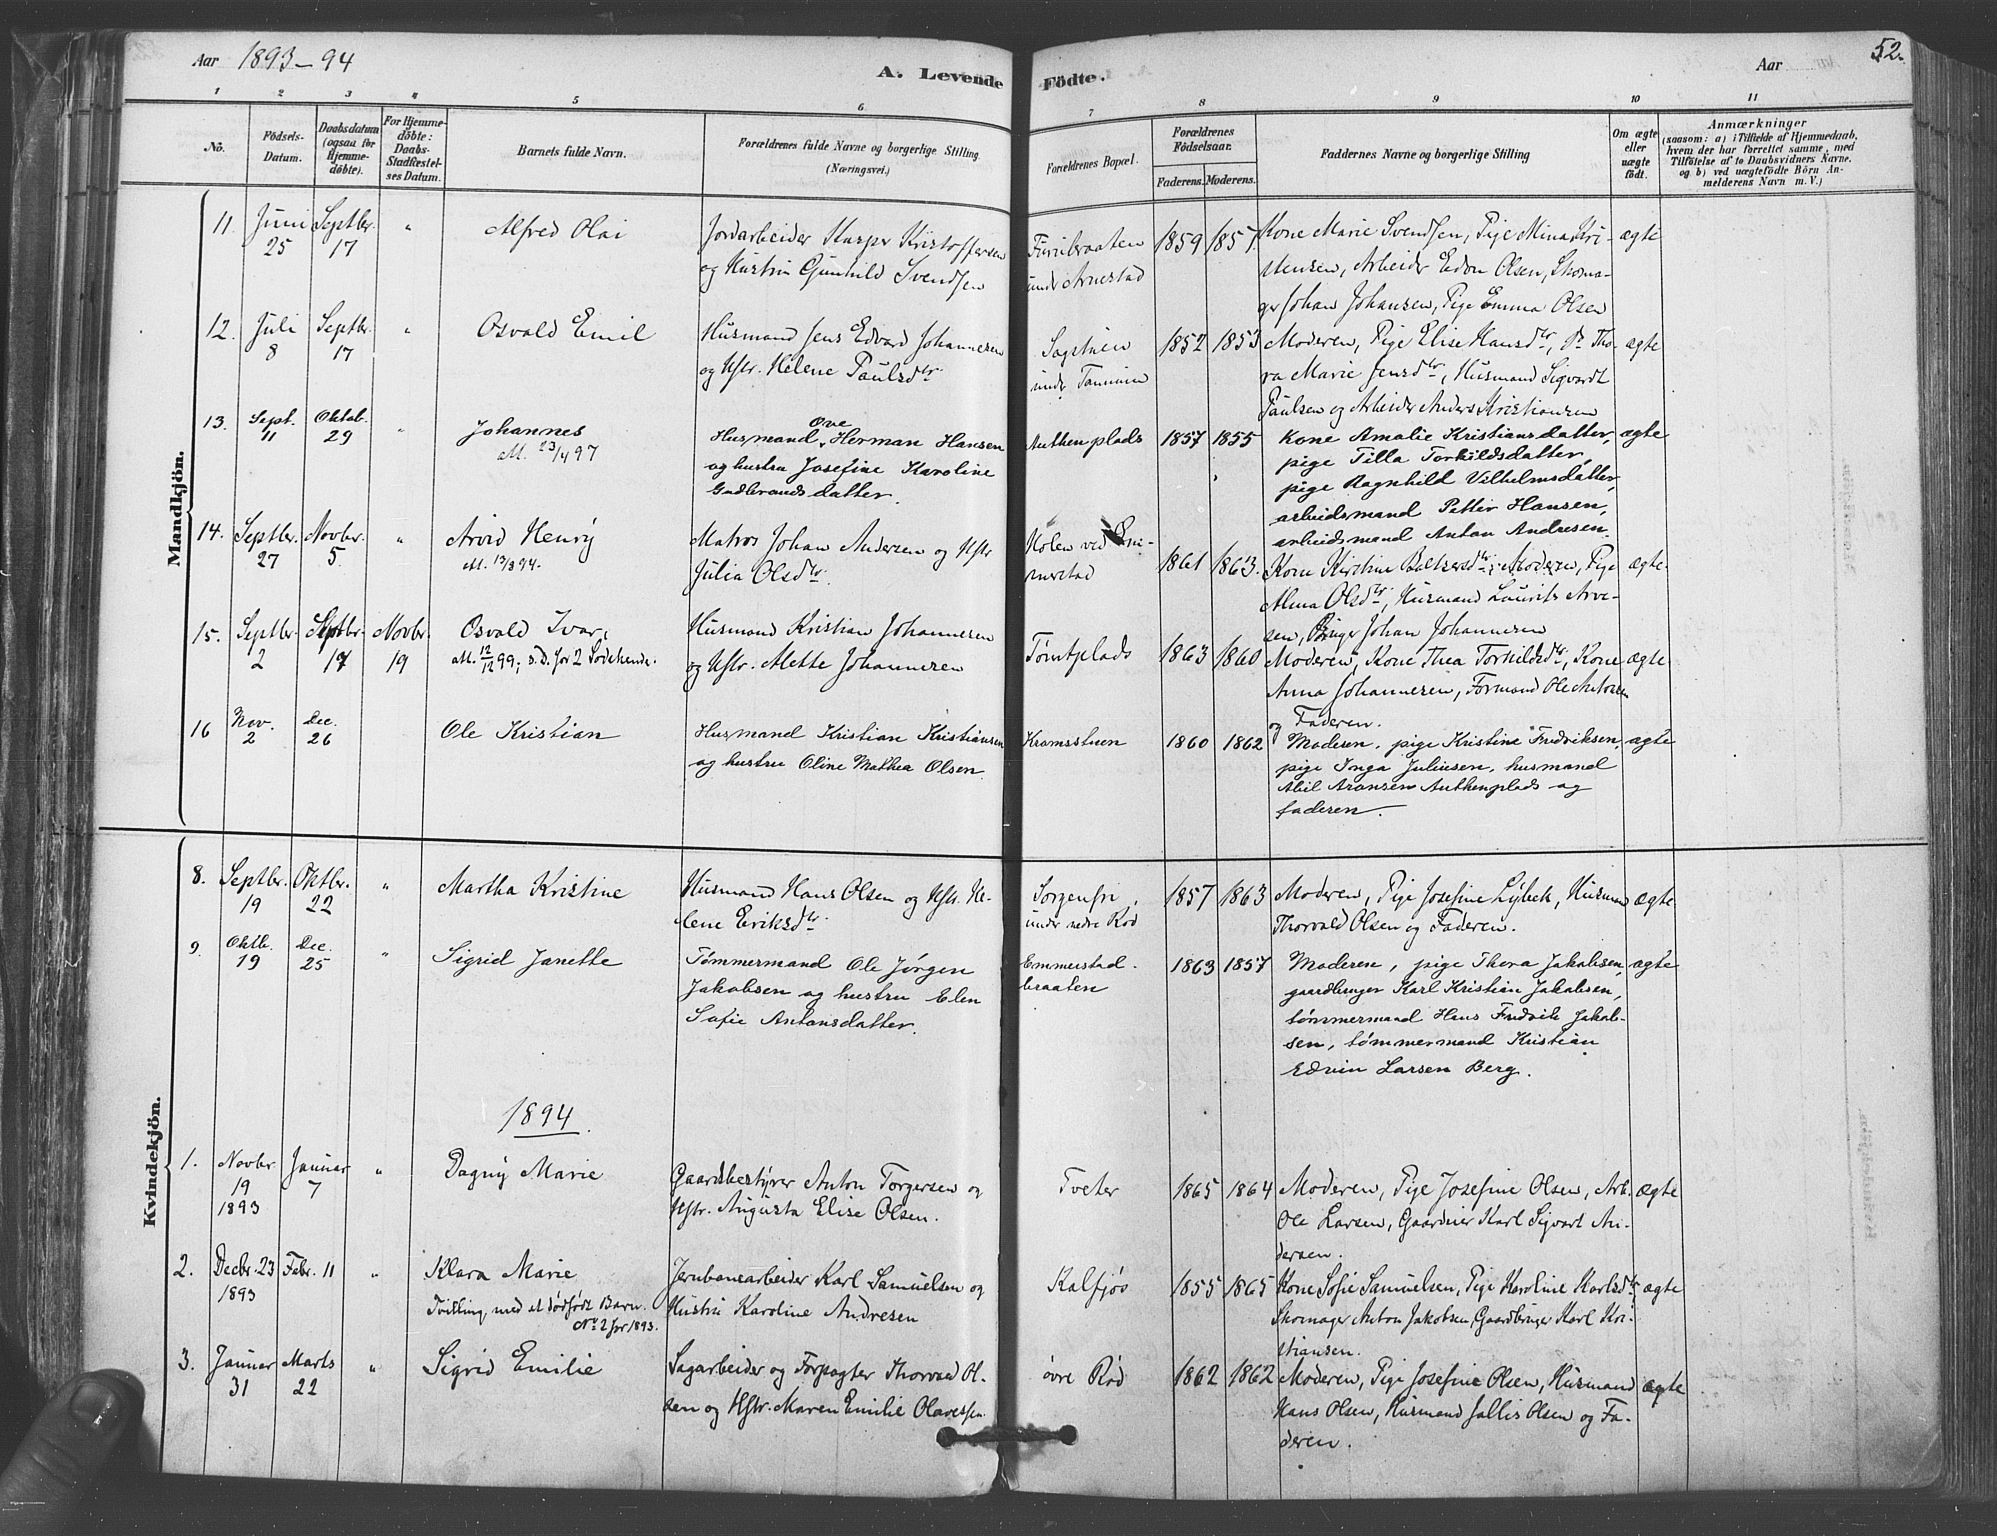 Aar 1893-94
A. Levende Födte.
Aar
52.
1 2 3 4 5 6 7 8 9 10 11
No.
Födsels-
Datum.
Daabsdatum
(ogsaa for
Hjemme-
döbte).
For Hjemme-
döbte:
Daabs-
Stadfæstel-
ses Datum.
Barnets fulde Navn.
Forældrenes fulde Navne og borgerlige Stilling
(Næringsvei.)
Forældrenes Bopæl.
Forældrenes
Födselsaar.
Faderens. Moderens.
Faddernes Navne og borgerlige Stilling
Om ægte
eller
uægte
födt.
Anmærkninger
(saasom: a) i Tilfælde af Hjemmedaab,
hvem der har forrettet samme, med
Tilföielse af to Daabsvidners Navne.
og b) ved uægtefödte Börn An-
melderens Navn m. V.)
Mandkjön.
11. Juni 25 Septbr. 17 " Alfred Olai
Jordarbeider Kasper Kristoffersen
og Hustru Gunhild Svendsen
Furubraaten
under Arnestad
1859 1857
Kone Marie Svendsen, Pige Mina Kri-
stensen, Arbeider Edon Olsen, Skoma-
ger Johan Johansen, Pige Emma Olsen
ægte
12. Juli 8 Septbr. 17 " Osvald Emil
Husmand Jens Edvard Johannesen
og Hstr. Helene Paulsdtr
Sagstuen
under
1852 1853
Moderen, Pige Elise Hansdtr, P. Tho-
ra Marie Jensdtr, Husmand Sigvardt
Paulsen og Arbeider Anders Kristiansen
ægte
13. Sept. 11 Oktob. 29 " Johannes
Att. 23/4 97
Husmand Ove Herman Hansen
og hustru Josefine Karoline
Gudbrandsdatter.
Authenplads
1857 1855
Kone Amalie Kristiansdatter,
pige Tilla Torkildsdatter,
pige Ragnhild Vilhelmsdatter,
arbeidsmand Petter Hansen,
arbeidsmand Anton Andresen.
ægte
14. Septbr. 27 Novbr. 5. " Arvid Henry
Att. 13/8 94.
Matros Johan Andersen og Hstr
Julia Olsdtr.
Holen ved Em-
merstad
1861 1863.
Kone Kirstine Baltzersdtr, Moderen, Pige
Alma Olsdtr, Husmand Laurits Arve-
sen, Johan Johannesen
ægte.
15. Septbr. 2 Septbr. 17 Novbr. 19 Osvald Ivar,
att. 12/12 99; s. D. for 2 Sødskende.
Husmand Kristian Johannesen
og Hstr. Mette Johannesen
Tømtplads
1863 1860
Moderen, Kone Thea Torkildsdtr, Kone
Anna Johannesen, Formand Ole Antonsen
og Faderen.
ægte
16 Nov. 2 Dec. 26 Ole Kristian
Husmand Kristian Kristiansen
og hustru Oline Mathea Olsen
Kramsstuen
1860 1862
Moderen, pige Kristine Fredriksen,
pige Inga Juliusen, husmand
Abil Aronsen Authenplads og
faderen.
ægte
Kvindekjön.
8. Septbr. 19 Oktbr. 22 " Martha Kristine
Husmand Hans Olsen og Hstr. He-
lene Eriksdtr.
Sorgenfri,
under nedre Rød
1857 1863
Moderen, Pige Josefine Lybeck, Husmand
Thorvald Olsen og Faderen.
ægte.
9. Oktb. 19 Dec. 25 " Sigrid Janette
Tømmermand Ole Jørgen
Jakobsen og hustru Elen
Sofie Antonsdatter.
Emmerstad-
braaten
1863 1857
Moderen, pige Thora Jakobsen,
gaardbruger Karl Kristian Jakobsen,
tømmermand Hans Fredrik Jakob-
sen, tømmermand Kristian
Edvin Larsen Berg.
ægte
1894.
1. Novbr 19 1893 Januar 7 " Dagny Marie
Gaardbestyrer Anton Torgersen og
Hstr. Augusta Elise Olsen.
Tveter
1865 1864
Moderen, Pige Josefine Olsen, Arb.
Ole Larsen, Gaardeier Karl Sigvart An-
dersen.
ægte
2. Decbr. 23 1893 Febr. 11 " Klara Marie
Tvilling, med et dødfødt Barn.
No 2 for 1893.
Jernbanearbeider Karl Samuelsen og
Hustru Karoline Andresen
Kalfjøs
1855 1865
Kone Sofie Samuelsen, Pige Karoline Karlsdtr
Skomager Anton Jakobsen, Gaardbruger Karl Kri-
stiansen.
ægte
3. Januar 31 Marts 22 " Sigrid Emilie
Sagarbeider og Forpagter Thorvald Ol-
sen og Hstr. Maren Emilie Olavessen
øvre Rød
1862 1862
Moderen, Pige Josefine Olsen, Husmand
Hans Olsen, Husmand Jallis Olsen og Fa-
deren.
ægte